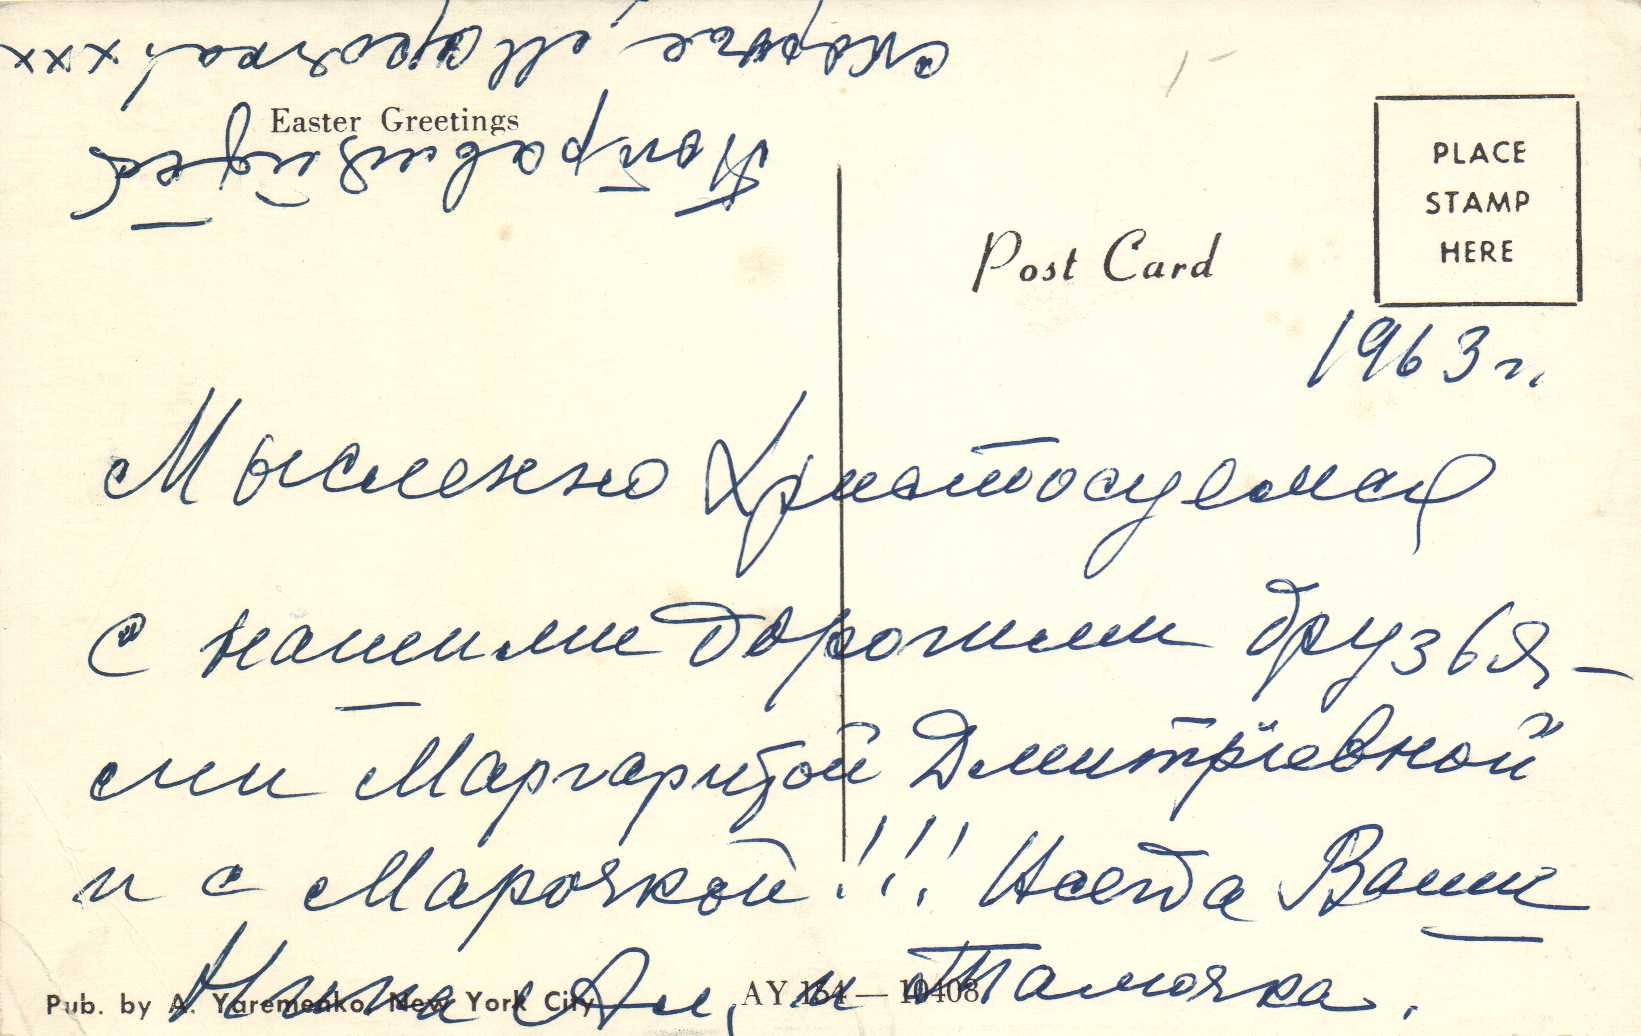 Easter Greetings
Post Card
PLACE
STAMP
HERE
1963 г.
Мысленно Христосуемся
с нашими дорогими друзья-
ми Маргаритой Дмитріевной
и с Марочкой!!! Всегда Ваши
Нина Ал, и Тамочка.
Поправляйтесь
скорее, Марочка! xxx
Pub. by A. Yaremenko, New York City
AY 164 — 10408